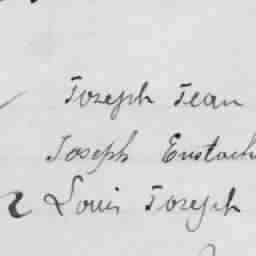 Joseph Jean
Joseph Eustach
2 Louis Joseph